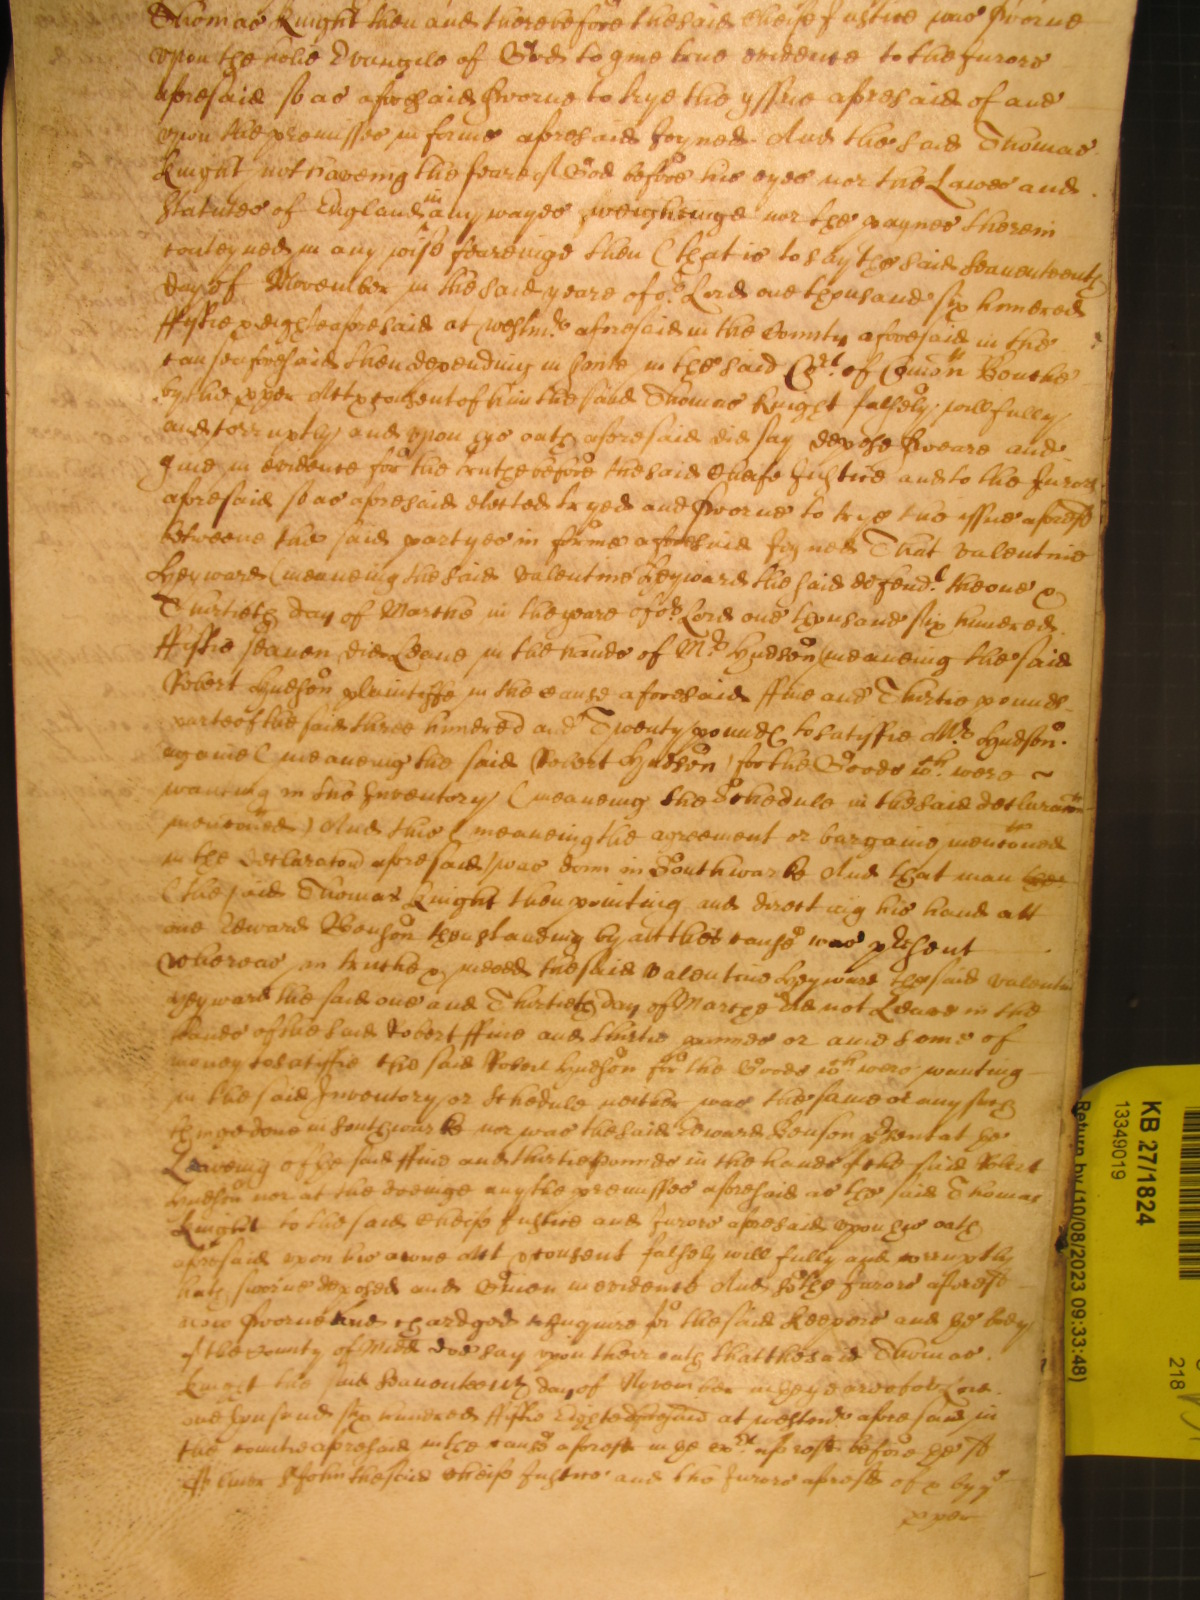 Thomas Knight then and there before the said Cheife Justice was sworne
upon the holie Evangile of God to give true evidence to the Jurors
aforesaid so as aforesaid sworne to trye the yssue aforesaid of and
upon the premisses in forme aforesaid Joyned And the said Thomas
Knight not haveing the feare of God before his eyes nor the Lawes and
Statutes of England in any wayes weighinge nor the paynes therein
conteyned in any wise feareinge then (that is to say the said Seaventeenth
day of November in the said yeare of or Lord one thousand six hundred
ffyftie & eight aforesaid at Westmr aforesaid in the County aforesaid in the
cause aforesaid then depending in sute in the said Cort of Comon Benche
by the pper Act & consent of him the said Thomas Knight falsely willfully
and corruptly and upon his oath aforesaid did say depose sweare and
give in evidence for the truthe before the said Cheife Justice and to the Jurors
aforesaid so as aforesaid elected tryed and sworne to trye the issue aforesd
betweene the said partyes in forme aforesaid Joyned That Valentine
Heyward (meaneing the said Valentine Heyward the said defendt) the one &
Thirtieth day of Marche in the yeare of or Lord one thousand six hundred
ffyftie seaven did Leave in the hands of Mr Hudson (meaneing the said
Robert Hudson plaintiffe in the cause aforesaid) ffive and Thirtie pounds
parte of the said three hundred and Twenty pounds to satysfie Mr Hudson
againe (meaneing the said Robert Hudson) for the Goods wch were
wanting in the Inventory (meaneing the Schedule in the said declaracon
menconed) And this (meaneing the agreement or bargaine menconed
in the declaracon aforesaid) was donn in Southwarke And that man
(the said Thomas Knight then pointing and directing his hand att
one Edward Benson then standing by att the cause was present
Whereas in truthe & indeed the said Valentine Heyward the said Valentine
Heyward the said one and Thirtieth day of Marche did not Leave in the
hands of the said Robert ffive and thirtie pounds or anie some of
money to satysfie the said Robert Hudson for the Goods wch were wanting
in the said Inventory or Schedule neither was the same or any such
thinge done in Southwarke nor was the said Edward Benson present at the
Leaveing of the said ffive and thirtie pounds in the hands of the said Robert
Hudson nor at the doeinge any the premisses aforesaid as the said Thomas
Knight to the said Cheife Justice and Jurors aforesaid upon his oath
aforesaid upon his owne act & consent falsely willfully and corruptly
hath sworne deposed and Given in evidence And so the Jurors aforesd
now sworne and chardged to enquire for the said Keepers and the body
of the County of Midd doe say upon their oath that the said Thomas
Knight the said Seaventeenth day of November in the yeare of or Lord
one thousand six hundred ffiftie Eight aforesaid at Westmr aforesaid in
the countie aforesaid in the cause aforesd in the Cort aforesd before the sd
Oliver St John the said Cheife Justice and the Jurors aforesd of & by ye
pper
KB 27/1824
13349019
218
Return by (10/08/2023 09:33:48)